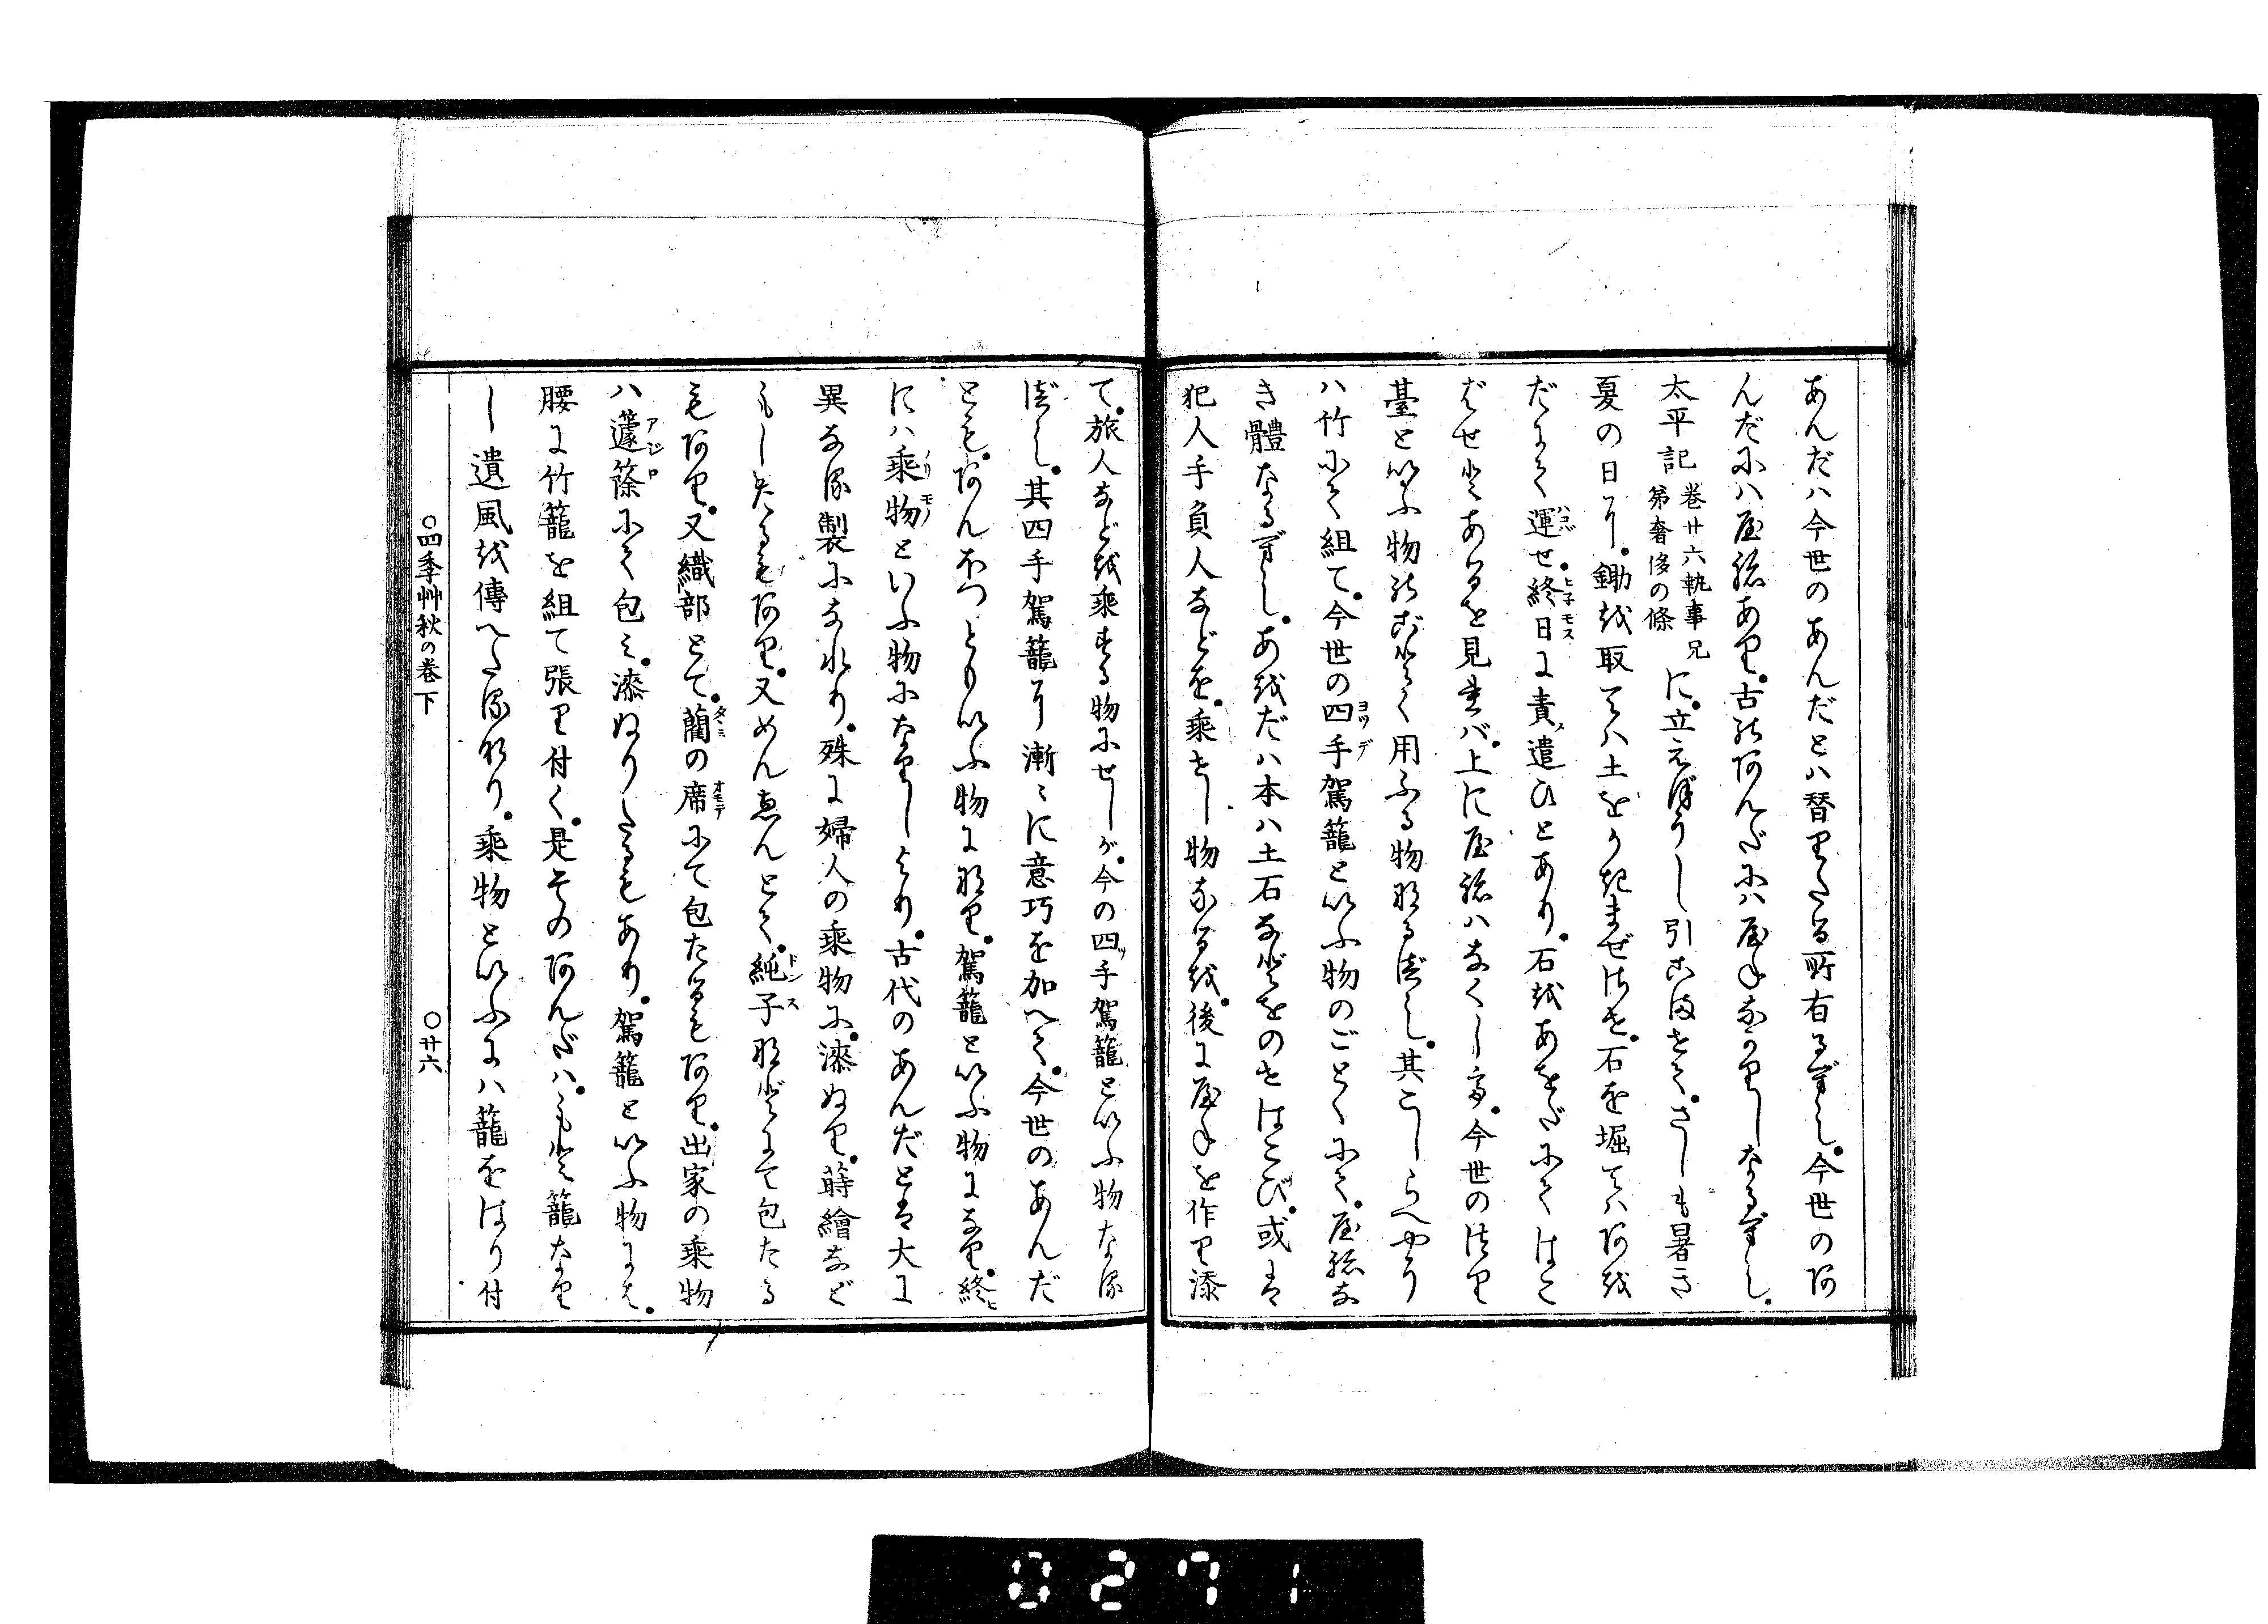 あんだハ今世のあんだとハ替りたる所有るべし。今世のあ
んだにハ屋根あり。古のあんだにハ屋ねなかりしなるべし。
太平記
巻廿六執事兄
弟奢侈の條
に。立えぼうし引こませて。さしも暑き
夏の日に。鋤を取てハ土をかきまぜさせ。石を堀てハあを
だにて運ばせ。終日に責遣ひとあり。石をあをだにてはこ
ばせとあるを見れバ。上に屋根ハなくして。今世のつり
臺といふ物のごとく用ふる物なるべし。其こしらへやう
ハ竹にて組て。今世の四手駕籠といふ物のごとくにて。屋根な
き體なるべし。あをだハ本ハ土石などをのせはこび。或は
犯人手負人などを。乘せし物なるを。後に屋ねを作り添
て。旅人などを乘する物にせしが。今の四ッ手駕籠といふ物なる
べし。其四手駕籠に漸々に意巧を加へて。今世のあんだ
とも。あんぽつともいふ物になり。駕籠といふ物になり。終
にハ乘物といふ物になりしより。古代のあんだとは大に
異なる製になれり。殊に婦人の乘物に。漆ぬり。蒔繪など
もしたるもあり。又めんゑんとて。純子などにて包たる
もあり。又織部とて。藺の席にて包たるもあり。出家の乘物
ハ籧篨にて包ミ。漆ぬりたるもあり。駕籠といふ物には。
腰に竹籠を組て張り付く。是そのあんだハ。もと籠なり
し遺風を傳へたるなり。乘物といふにハ籠をはり付
○四季艸秋の巻下
○廿六
0271